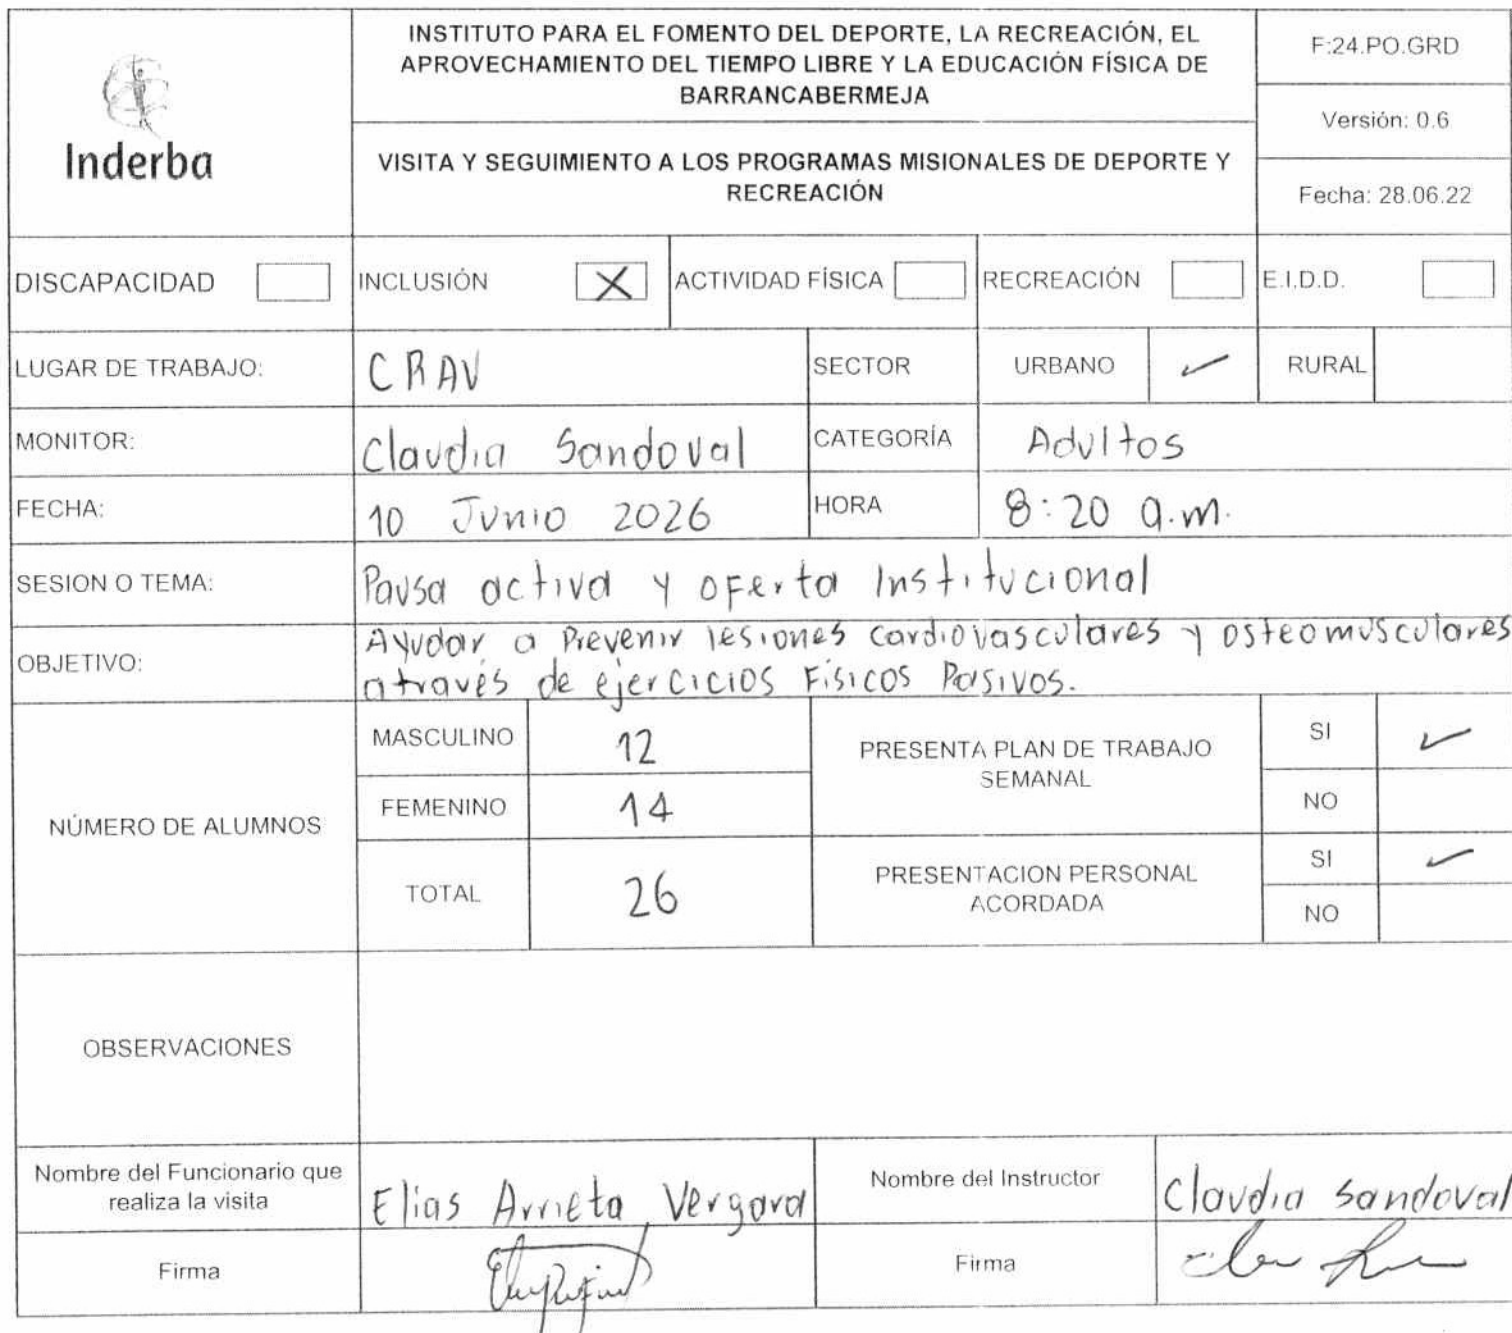 Inderba
INSTITUTO PARA EL FOMENTO DEL DEPORTE, LA RECREACIÓN, EL
APROVECHAMIENTO DEL TIEMPO LIBRE Y LA EDUCACIÓN FÍSICA DE
BARRANCABERMEJA
VISITA Y SEGUIMIENTO A LOS PROGRAMAS MISIONALES DE DEPORTE Y
RECREACIÓN
F:24.PO.GRD
Versión: 0.6
Fecha: 28.06.22
DISCAPACIDAD INCLUSIÓN X ACTIVIDAD FÍSICA RECREACIÓN E.I.D.D.
LUGAR DE TRABAJO: CRAV SECTOR URBANO ✓ RURAL
MONITOR: Claudia Sandoval CATEGORÍA Adultos
FECHA: 10 Junio 2026 HORA 8:20 a.m.
SESION O TEMA: Pausa activa y oferta Institucional
OBJETIVO: Ayudar a Prevenir lesiones cardiovasculares y osteomusculares
através de ejercicios Físicos Pasivos.
NÚMERO DE ALUMNOS
MASCULINO 12
FEMENINO 14
TOTAL 26
PRESENTA PLAN DE TRABAJO
SEMANAL
SI ✓
NO
PRESENTACION PERSONAL
ACORDADA
SI ✓
NO
OBSERVACIONES
Nombre del Funcionario que
realiza la visita
Elias Arrieta Vergara
Nombre del Instructor
Claudia Sandoval
Firma
Firma